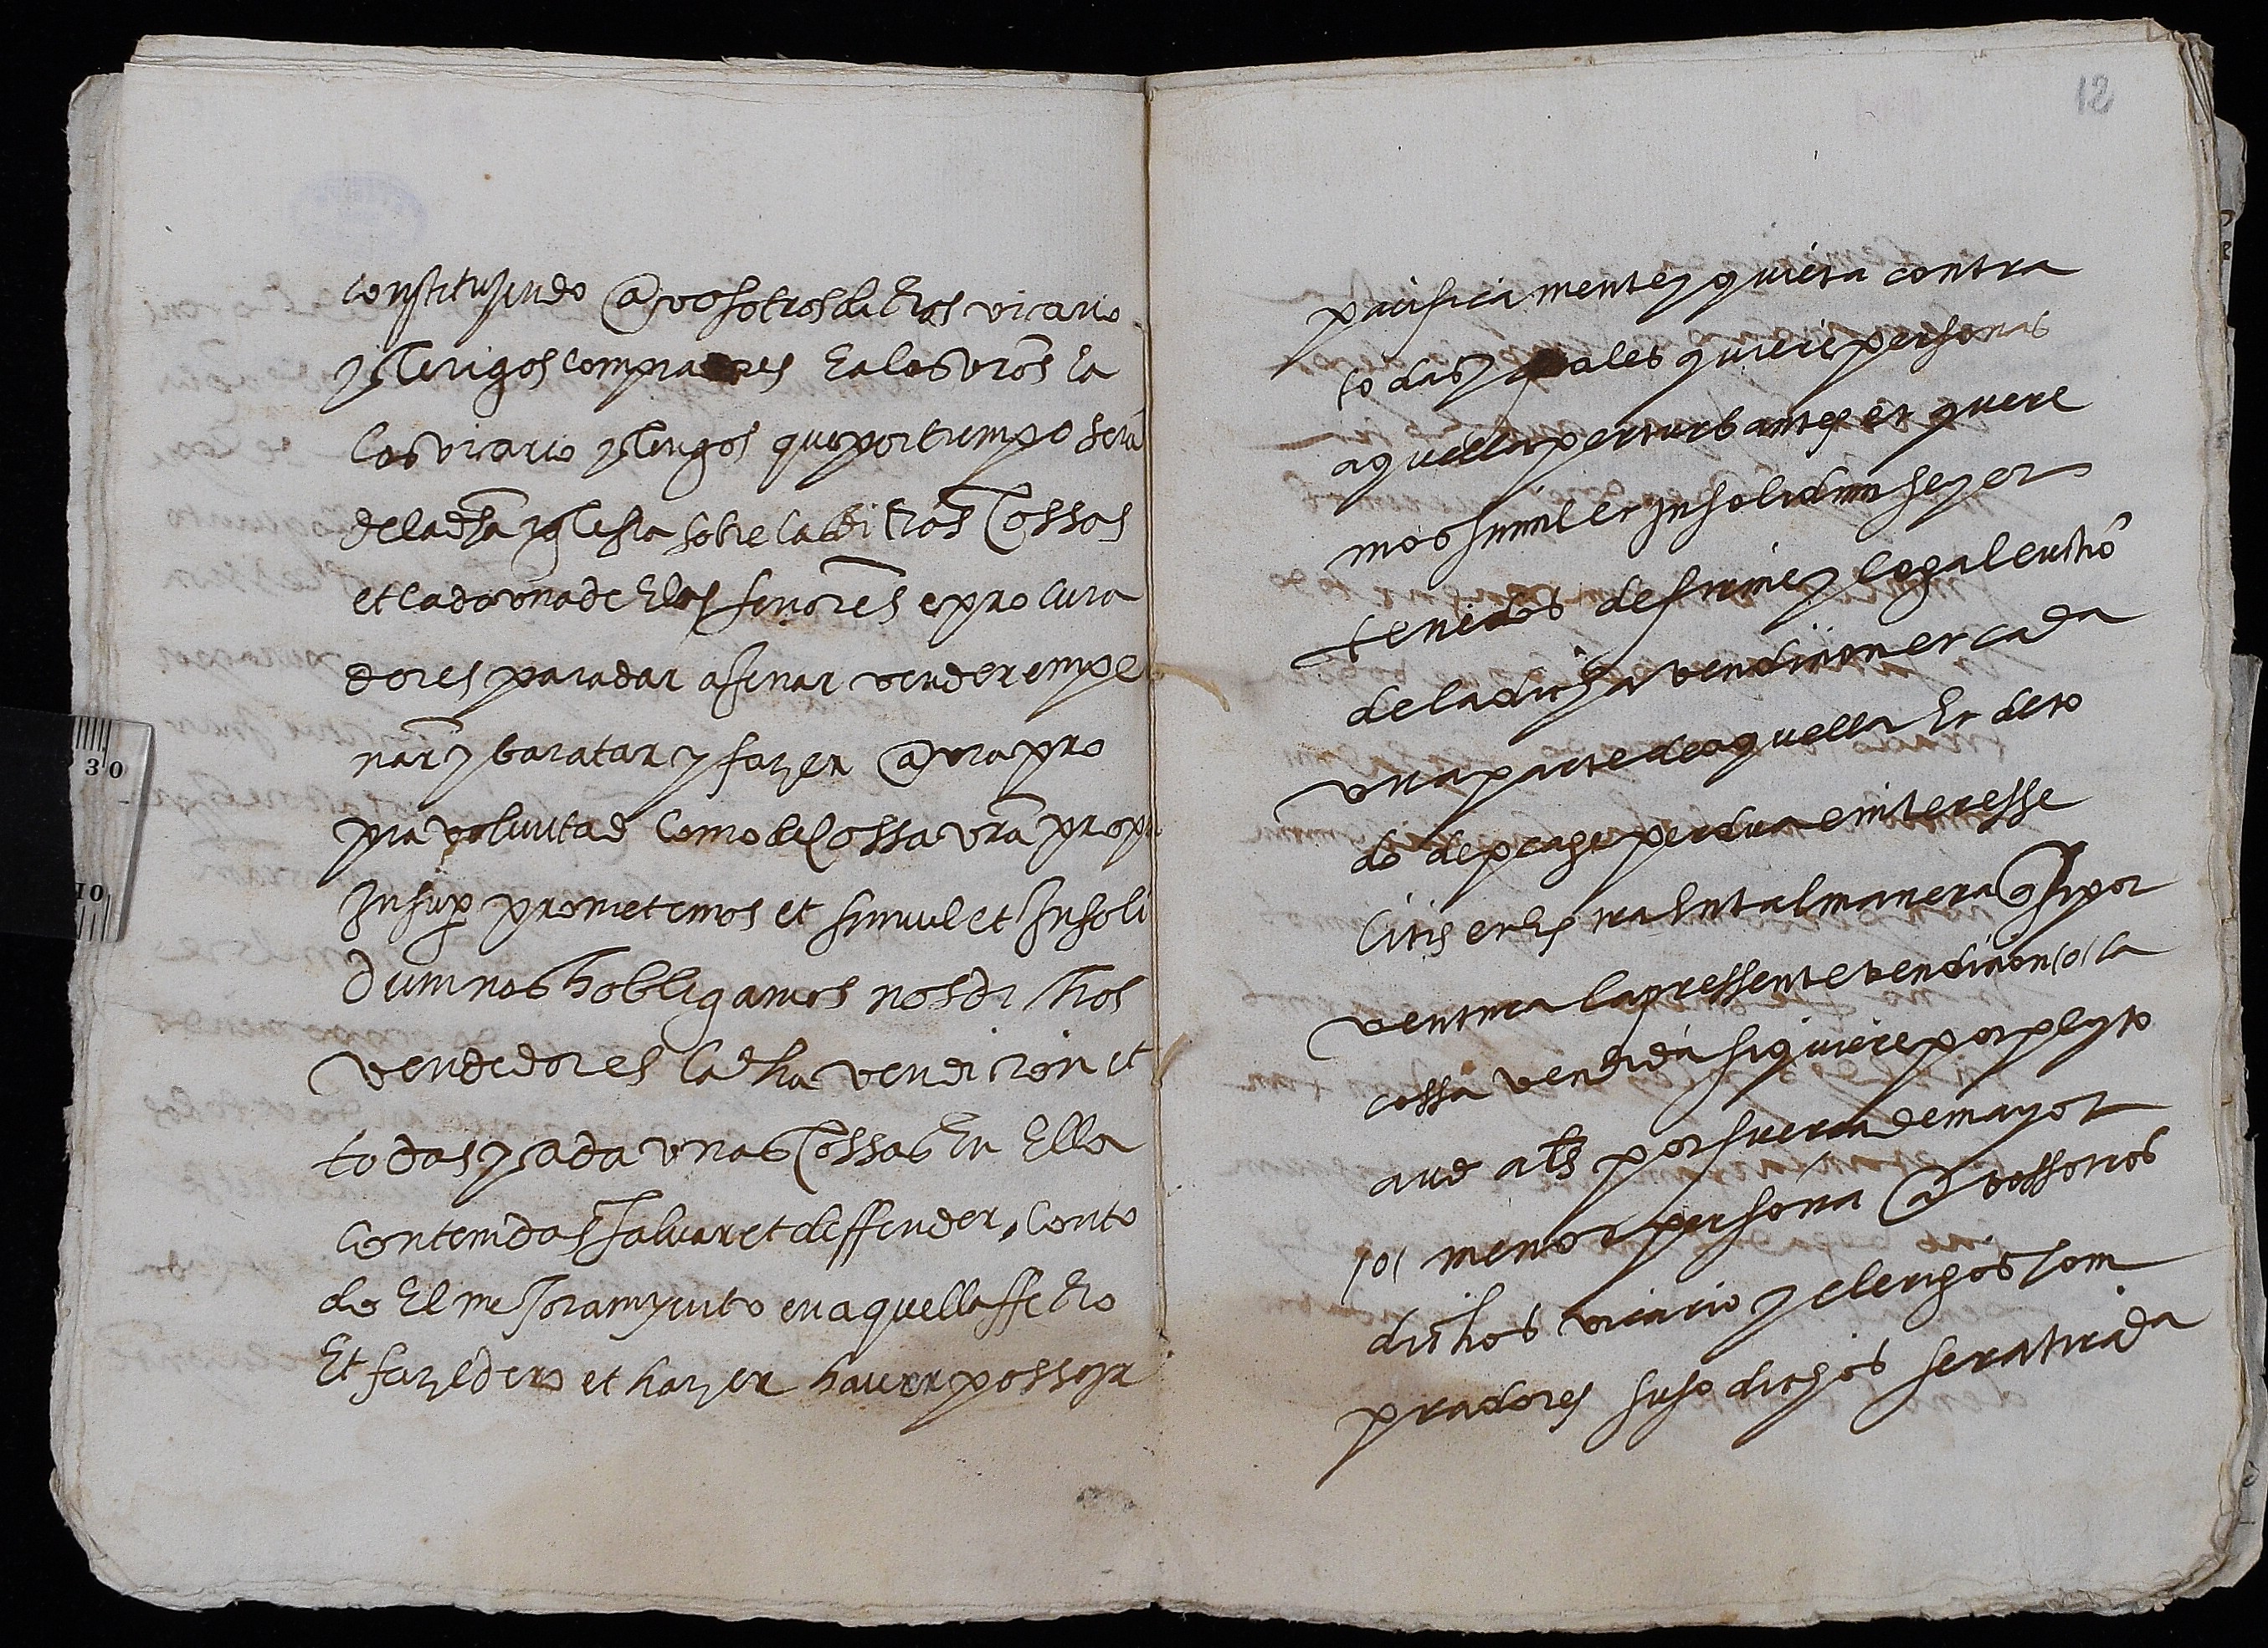 constituyendo a vosotros dictos vicario
y clerigos compradores e a los vros e a
los vicario y clerigos que por tiempo será
de la dha yglesia sobre las dictas cossas
et cada una de ellas senores e procura
dores para dar assinar vender empe
nar y baratar y fazer a vra pro
pia voluntad como de cossa vra propi
Insup prometemos et simul et Insoli
dum nos hobligamos nos dichos
vendedores la dha vendicion et
todas y cada unas cossas en ella
contenidas salvar et deffender conto
do el mejoramyento en aquella ffecto
Et fazedero et hazer haver possoyr
12
pacificamente y quieta contra
todas y quales quiere personas
aquella perturbantes et quere
mos simul et Insolidum seyer
tenidos de firme y legal evictiō
de la dicha vendicion et cada
una parte de aquella Et de to
do depcage perdua e interesse
litis et extra En tal manera q si por
ventura la pressente vendicion (o) la
cossa vendida siquiere por pleyto
aud als por fuerça de mayor
(o) menor persona a vossotros
dichos vicario y clerigos com
pradores suso dichos sera tirada